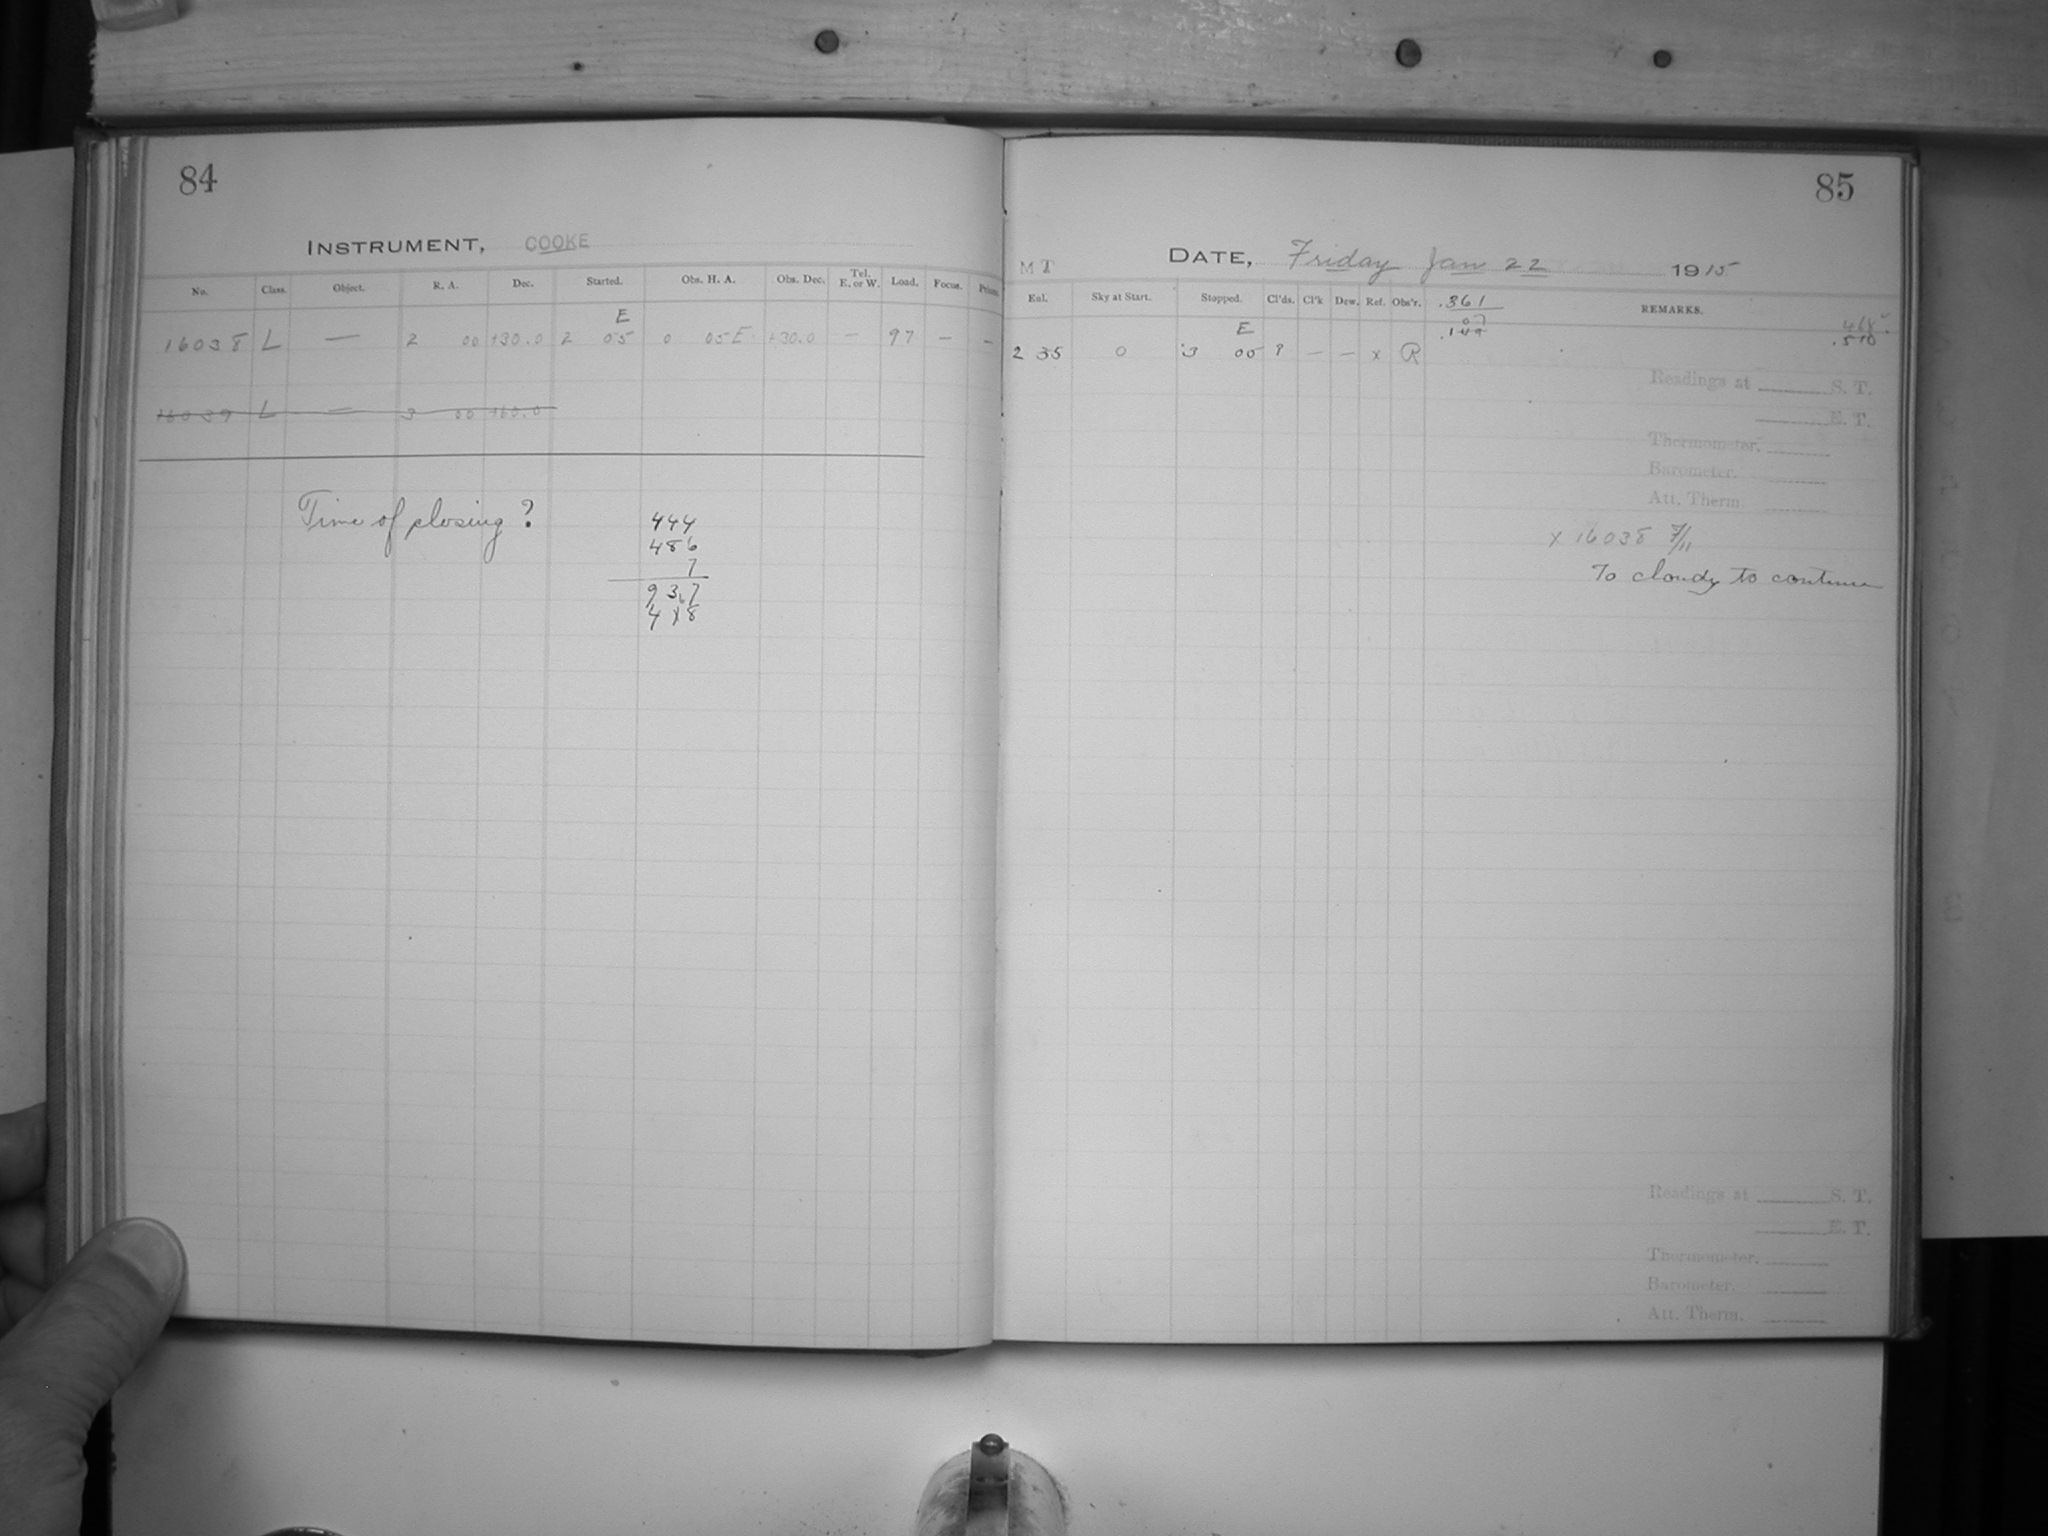 84
INSTRUMENT, COOKE
No. Class. Object. R. A. Dec. Started. Obs. H. A. Obs. Dec. Tel. E. or W. Load. Focus.
E
16038 L — 2 00 +30.0 2 05 0 05 E +30.0 — 97 — —
16039 L — 3 00 +60.0
Time of closing?
444
486
7
937
85
MT DATE, Friday Jan 22 1915
Exl. Sky at Start. Stopped. Cl'ds. Cl'k Dew. Ref. Obs'r. .361 REMARKS.
07
.149
E
2 35 0 3 00 ? — — x R
Readings at S. T.
E. T.
Thermometer.
Barometer.
Att. Therm.
x 16038 7/11
To cloudy to continue
Readings at S. T.
E. T.
Thermometer.
Barometer.
Att. Therm.